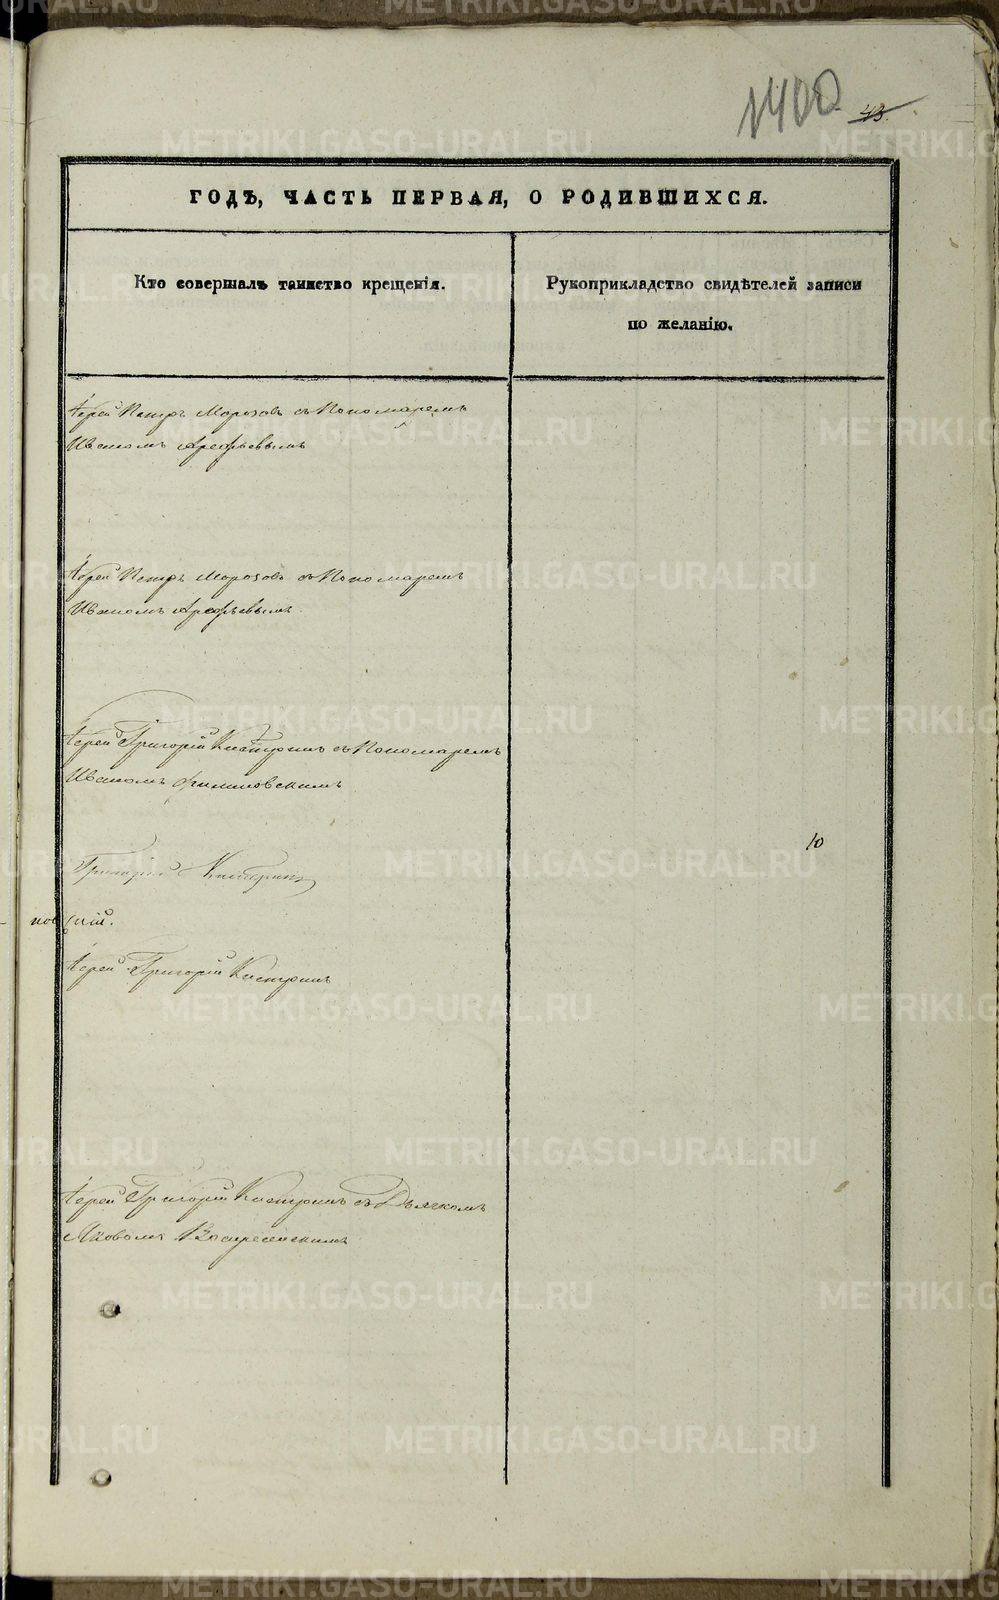 1400 43.
ГОДЪ, ЧАСТЬ ПЕРВАЯ, О РОДИВШИХСЯ.
Кто совершалъ таинство крещенія.
Рукоприкладство свидѣтелей записи
по желанію.
Іерей Петръ Морозовъ съ Пономаремъ
Иваномъ Арефьевымъ
Іерей Петръ Морозовъ съ Пономаремъ
Иваномъ Арефьевымъ.
Іерей Григорій Кастринъ съ Пономаремъ
Иваномъ
10
Григорій Кастринъ
новскій.
Іерей Григорій Кастринъ
Іерей Григорій Кастринъ съ Дьячкомъ
Яковомъ Воскресенскимъ
METRIKI.GASO-URAL.RU